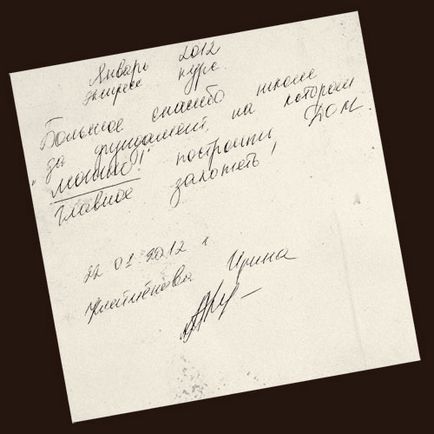 Январь 2012
экспресс курс.
Большое спасибо школе
за фундамент, на котором
"можно! построить ДОМ.
Главное захотеть!
22.01.2012 г
Ирина